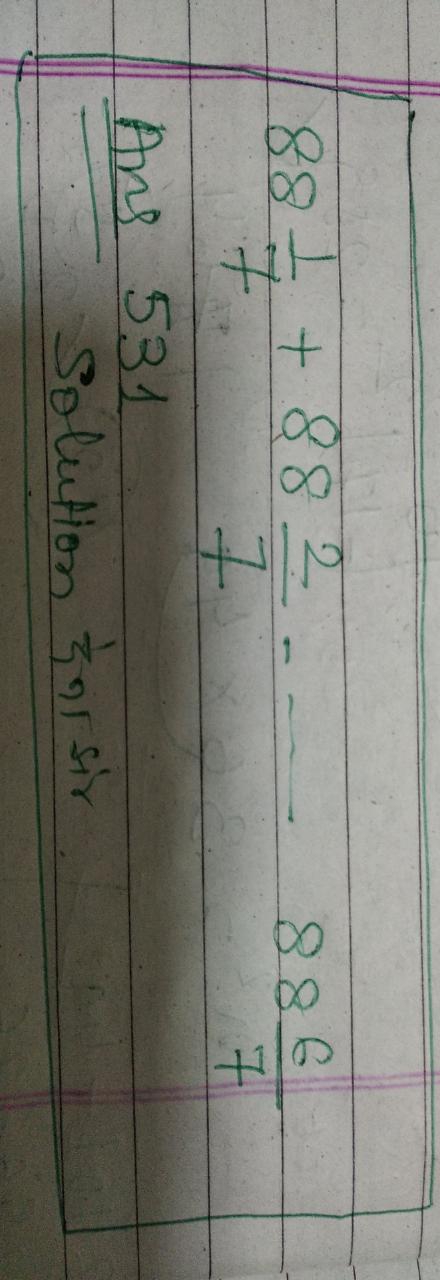 88 1/7 + 88 2/7 - —— 88 6/7
Ans 531
Solution